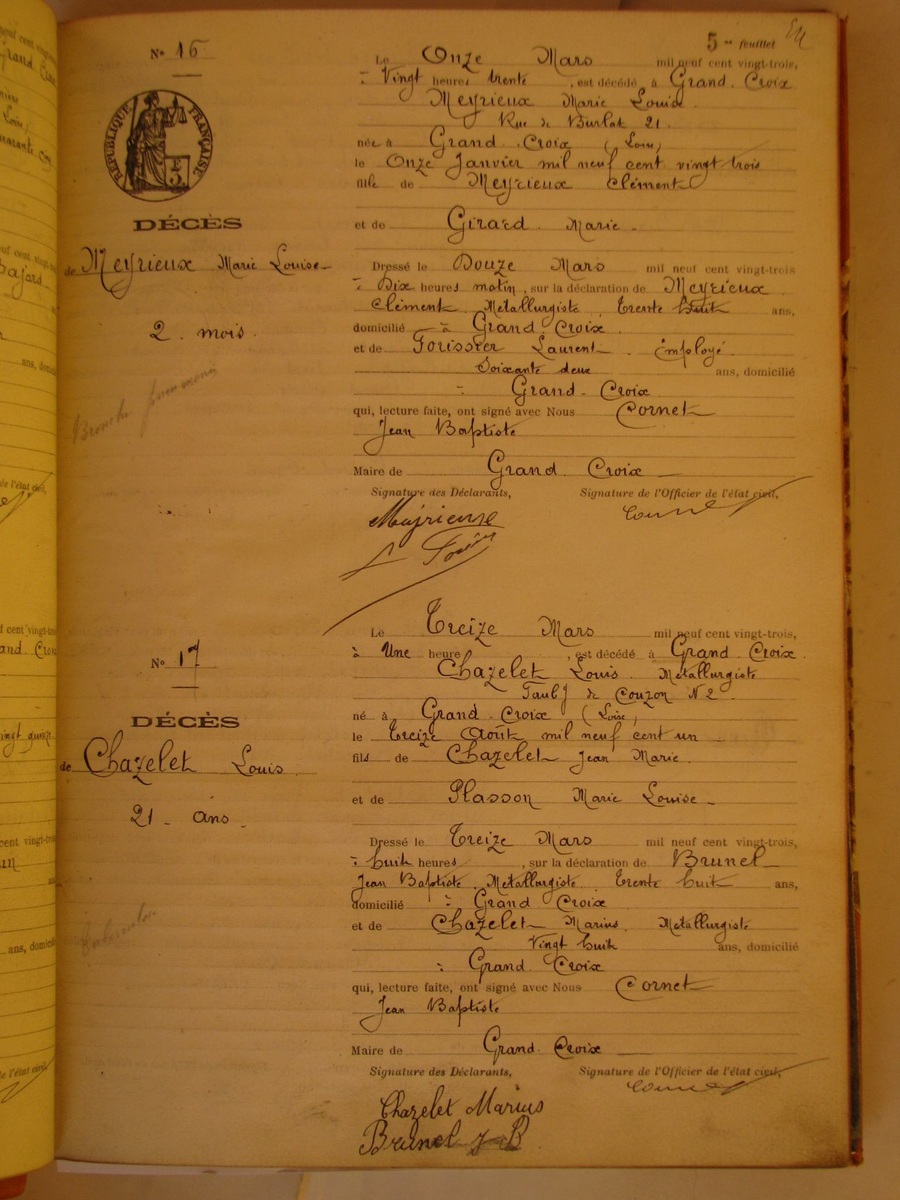 5me feuillet
No 16
RÉPUBLIQUE FRANÇAISE
DÉCÈS
de Meyrieux Marie Louise
2 mois.
Broncho pneumonie
Le Onze Mars mil neuf cent vingt-trois,
à Vingt heures trente, est décédé à Grand. Croix
Meyrieux Marie Louise
Rue de Burlat 21.
née à Grand. Croix (Loire)
le Onze Janvier mil neuf cent vingt trois
fille de Meyrieux Clément
et de Girard Marie.
Dressé le Douze Mars mil neuf cent vingt-trois
à Dix heures matin, sur la déclaration de Meyrieux
Clément. Métallurgiste. Trente huit ans,
domicilié à Grand. Croix.
et de Forissier Laurent. Employé
Soixante deux ans, domicilié
à Grand. Croix
qui, lecture faite, ont signé avec Nous Cornet
Jean Baptiste
Maire de Grand. Croix
Signature des Déclarants, Signature de l'Officier de l'état civil,
No 17
DÉCÈS
de Chazelet Louis
21 ans.
Le Treize Mars mil neuf cent vingt-trois,
à Une heure, est décédé à Grand Croix.
Chazelet Louis. Métallurgiste
Faubg de Couzon No 2
né à Grand. Croix (Loire)
le Treize Août mil neuf cent un
fils de Chazelet Jean Marie.
et de Plasson Marie Louise.
Dressé le Treize Mars mil neuf cent vingt-trois,
à huit heures, sur la déclaration de Brunel
Jean Baptiste. Métallurgiste. Trente huit ans,
domicilié à Grand Croix
et de Chazelet Marius. Métallurgiste
Vingt huit ans, domicilié
à Grand. Croix
qui, lecture faite, ont signé avec Nous Cornet
Jean Baptiste
Maire de Grand. Croix
Signature des Déclarants, Signature de l'Officier de l'état civil,
Chazelet Marius
Brunel J B